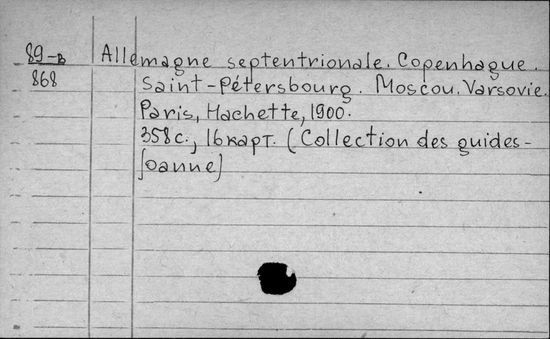 89-в Allemagne septentrionale. Copenhague.
868 Saint-Pétersbourg. Moscou. Varsovie.
Paris, Hachette, 1900.
358с., 16 карт. (Collection des guides-
Joanne)